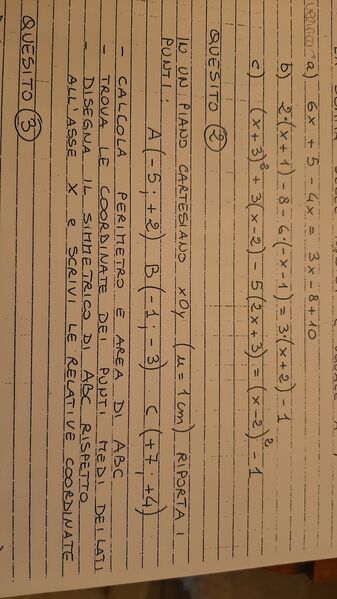 a) 6x + 5 - 4x = 3x - 8 + 10
b) 2·(x+1) - 8 - 6·(-x-1) = 3·(x+2) - 1
c) (x+3)² + 3(x-2) - 5(2x+3) = (x-2)² - 1
QUESITO 2
IN UN PIANO CARTESIANO xOy (u = 1 cm) RIPORTA I
PUNTI:
A(-5; +2) B(-1; -3) C(+7; +4)
- CALCOLA PERIMETRO E AREA DI ABC
- TROVA LE COORDINATE DEI PUNTI MEDI DEI LATI
- DISEGNA IL SIMMETRICO DI ABC RISPETTO
ALL'ASSE X e SCRIVI LE RELATIVE COORDINATE
QUESITO 3